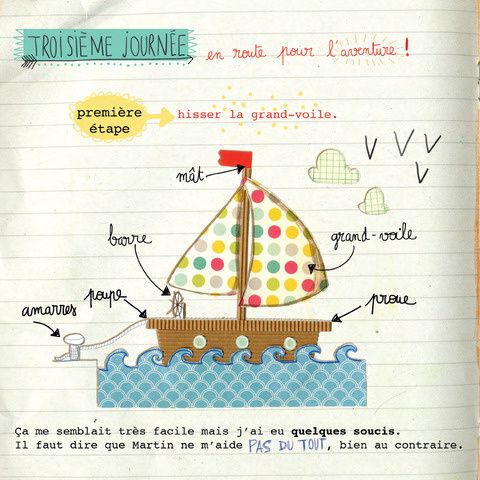 TROISIÈME JOURNÉE
en route pour l'aventure !
première
étape
hisser la grand-voile.
mât
barre
grand-voile
poupe
proue
amarres
Ça me semblait très facile mais j'ai eu quelques soucis.
Il faut dire que Martin ne m'aide PAS DU TOUT, bien au contraire.